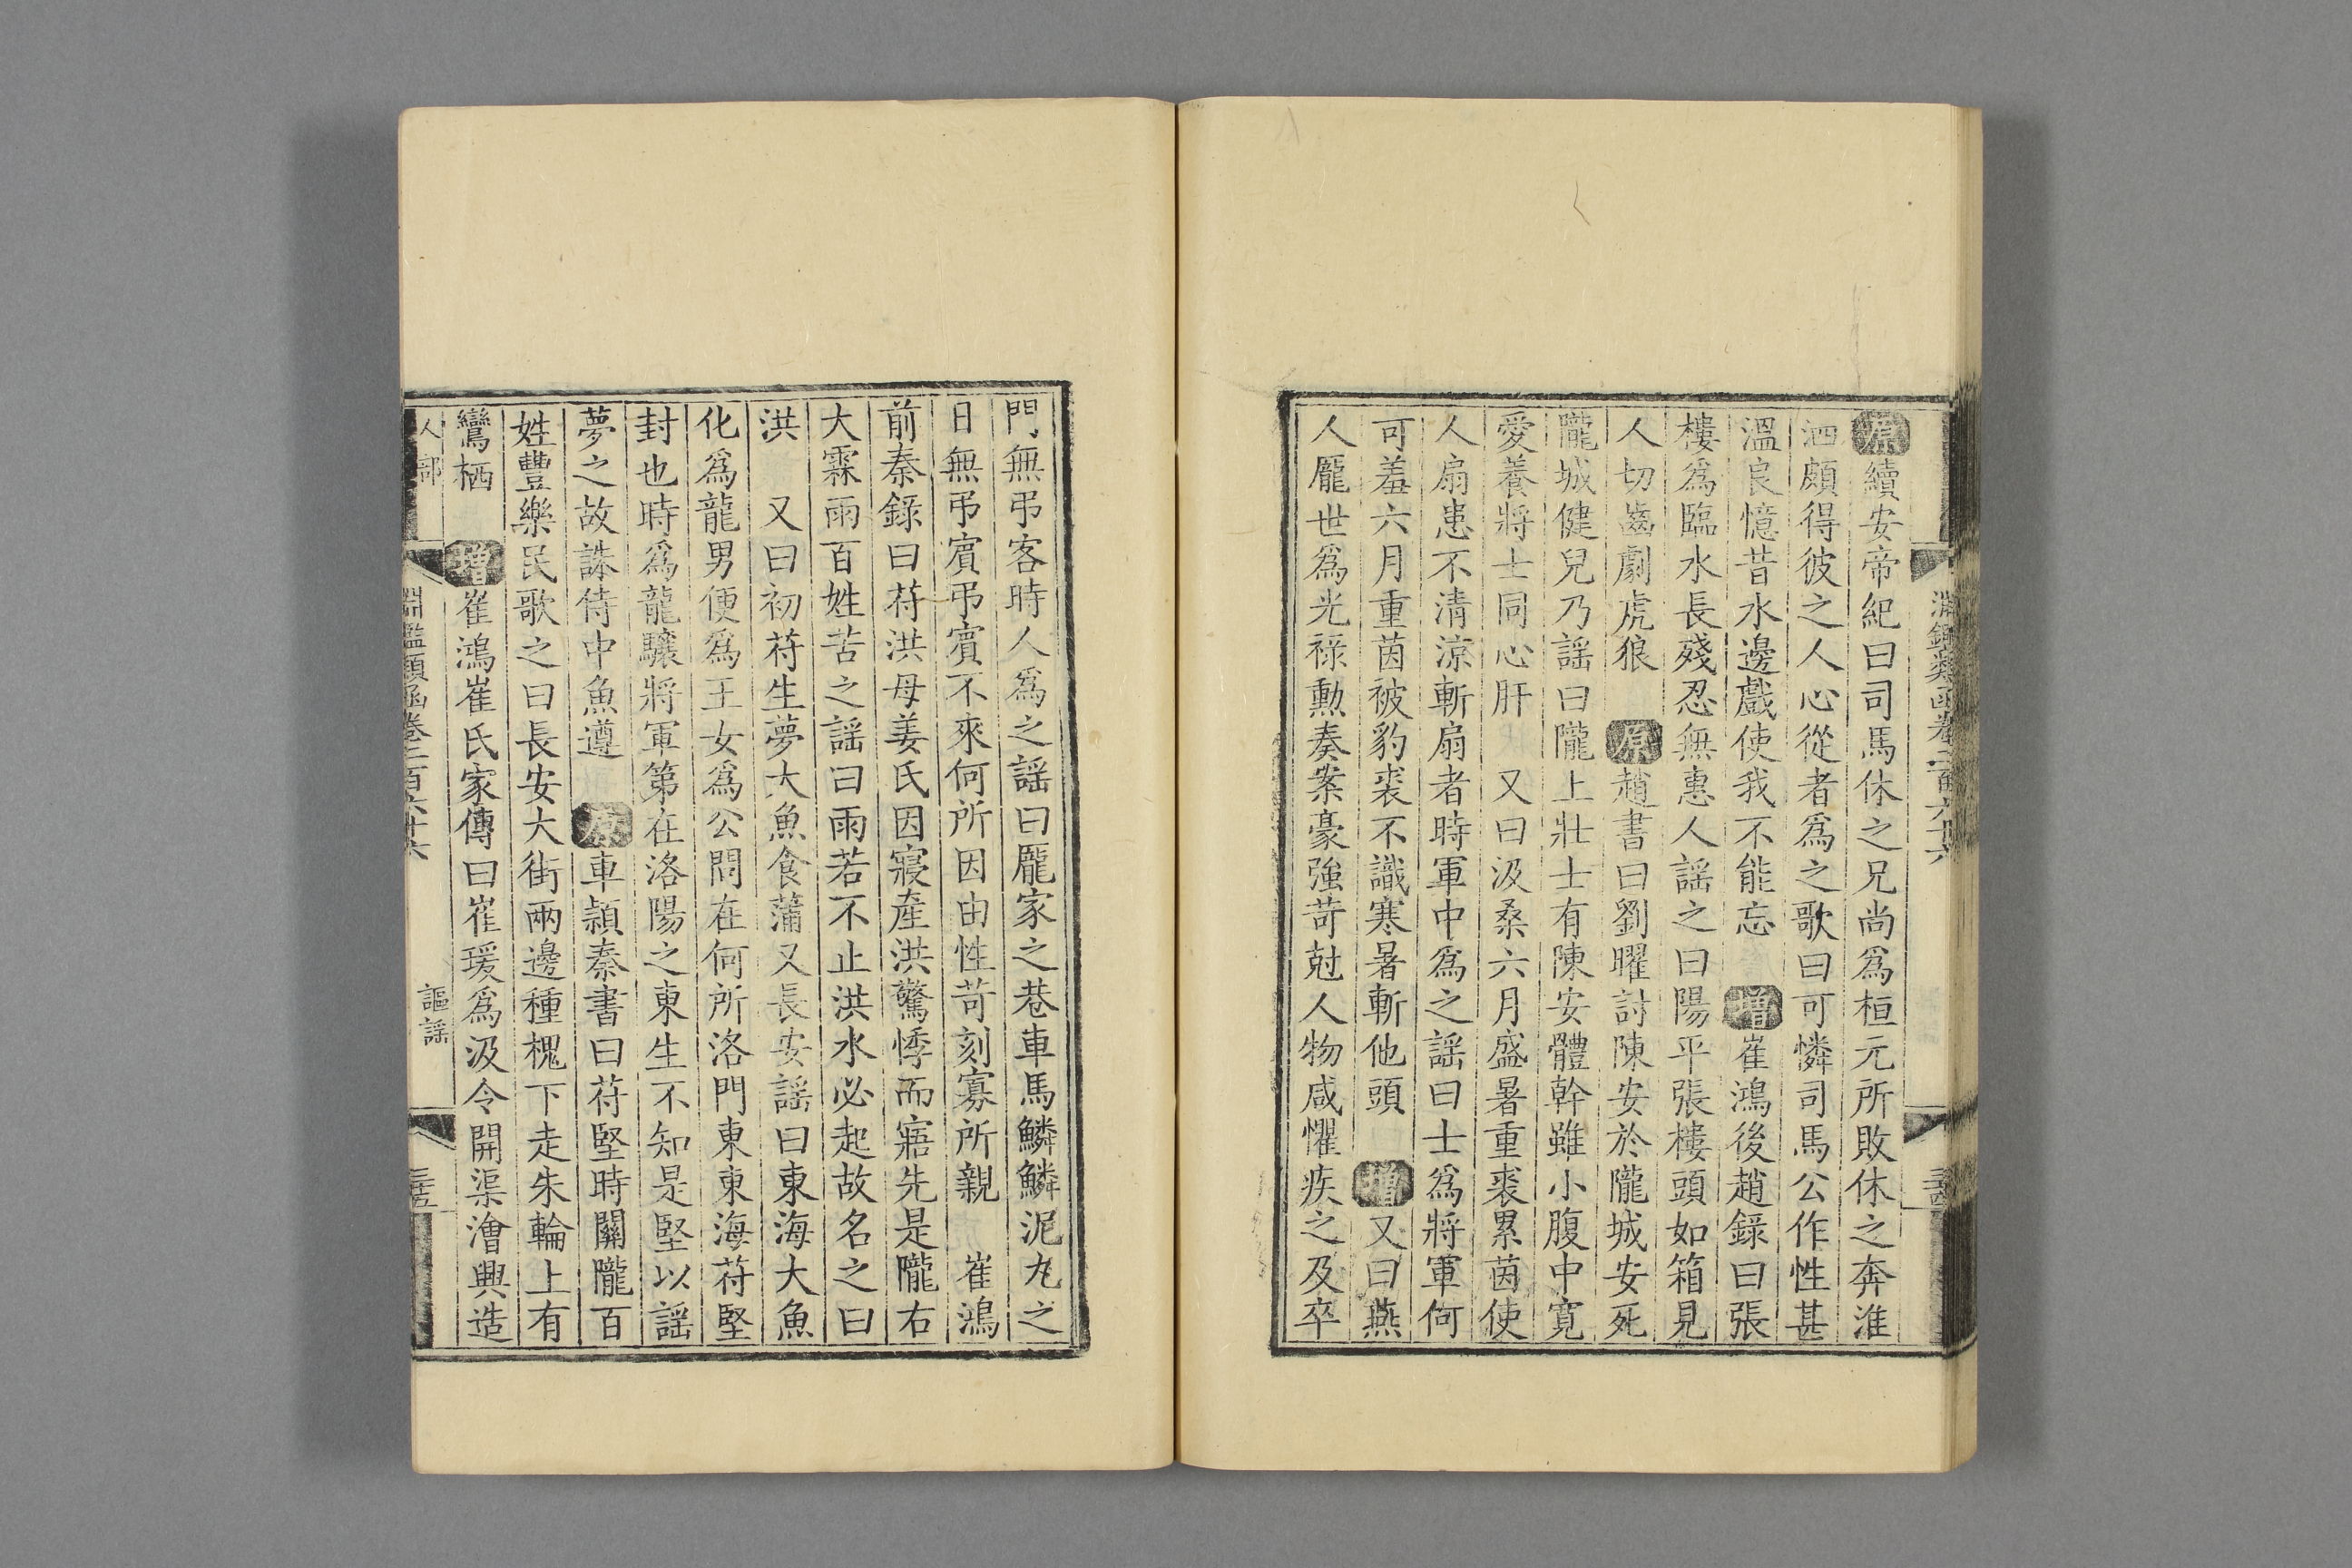 原續安帝紀曰司馬休之兄尚爲桓元所敗休之奔淮
泗頗得彼之人心從者爲之歌曰可憐司馬公作性甚
溫良憶昔水邊戲使我不能忘 增崔鴻後趙錄曰張
樓爲臨水長殘忍無惠人謡之曰陽平張樓頭如箱見
人切齒劇虎狼 原趙書曰劉曜討陳安於隴城安死
隴城健兒乃謡曰隴上壯士有陳安體幹雖小腹中寛
愛養將士同心肝 又曰汲桑六月盛暑重裘累茵使
人扇患不清涼斬扇者時軍中爲之謡曰士爲將軍何
可羞六月重茵被豹裘不識寒暑斬他頭 增又曰燕
人龎世爲光祿勲奏案豪強苛尅人物咸懼疾之及卒
淵鑑類函卷二百六十六
三十四
門無弔客時人爲之謡曰龎家之巷車馬鱗鱗泥丸之
日無弔賓弔賓不來何所因由性苛刻寡所親 崔鴻
前秦錄曰苻洪母姜氏因寢產洪驚悸而寤先是隴右
大霖雨百姓苦之謡曰雨若不止洪水必起故名之曰
洪 又曰初苻生夢大魚食蒲又長安謡曰東海大魚
化爲龍男便爲王女爲公問在何所洛門東東海苻堅
封也時爲龍驤將軍第在洛陽之東生不知是堅以謡
夢之故誅侍中魚遵 原車頴秦書曰苻堅時關隴百
姓豐樂民歌之曰長安大街兩邊種槐下走朱輪上有
鸞栖 增崔鴻崔氏家傳曰崔瑗爲汲令開渠澮興造
人部 淵鑑類函卷二百六十六 謳謡 三十五